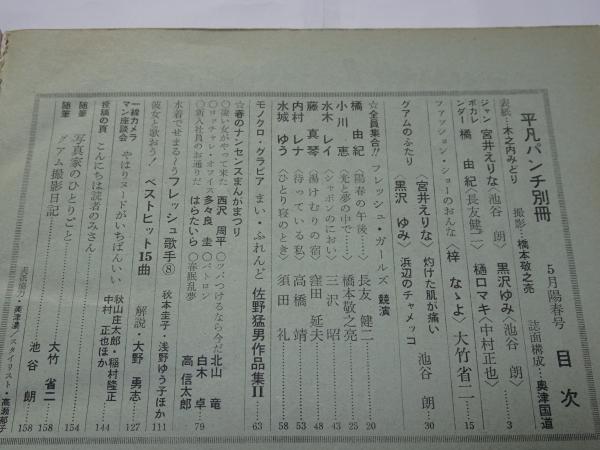 平凡パンチ別冊 5月陽春号 目次
表紙・木之内みどり 撮影・橋本敬之亮 誌面構成・奥津国道
ジャンボカレンダー 宮井えりな〈池谷 朗〉 黒沢ゆみ〈池谷 朗〉 3
橘 由紀〈長友健二〉 樋口マキ〈中村正也〉
ファッション・ショーのおんな〈梓 なゝよ〉大竹省二 15
グアムのふたり〈宮井えりな〉灼けた肌が痛い
〈黒沢 ゆみ〉浜辺のチャメッコ 池谷 朗 30
☆全員集合!!フレッシュ・ガールズ競演
橘 由紀〈陽春の午後…〉長友 健二 20
小川 恵〈光と夢の中で……〉橋本敬之亮 25
水木 レイ〈シャボンのにおい〉三沢 昭 40
藤 真琴〈湯けむりの宿〉窪田 延夫 43
内村 レナ〈待っている私〉高橋 靖 53
水城 ゆう〈ひとり寝のとき〉須田 礼 58
モノクロ・グラビア まい・ふれんど 佐野猛男作品集II 63
☆春のナンセンスまんがまつり
○凄い女がやって来た 西沢 周平 ○ツバつけるなら今だ 北山 竜
○ロッチャレ・オフィス 多々良 圭 ○パトロン 白木 卓 79
○新入社員のお通りだ はらたいら ○春眠乱夢 高 信太郎
水着でせまる〜うフレッシュ歌手⑧ 秋本圭子・浅野ゆう子ほか 111
彼女と歌おう! ベストヒット15曲 解説・大野 勇志 127
一線カメラマン座談会 やはりヌードがいちばんいい 秋山庄太郎・稲村隆正 中村 正也ほか 144
投稿の頁 こんにちは読者のみさん 154
随筆 写真家のひとりごと 大竹 省二 158
随筆 グアム撮影日記 池谷 朗 158